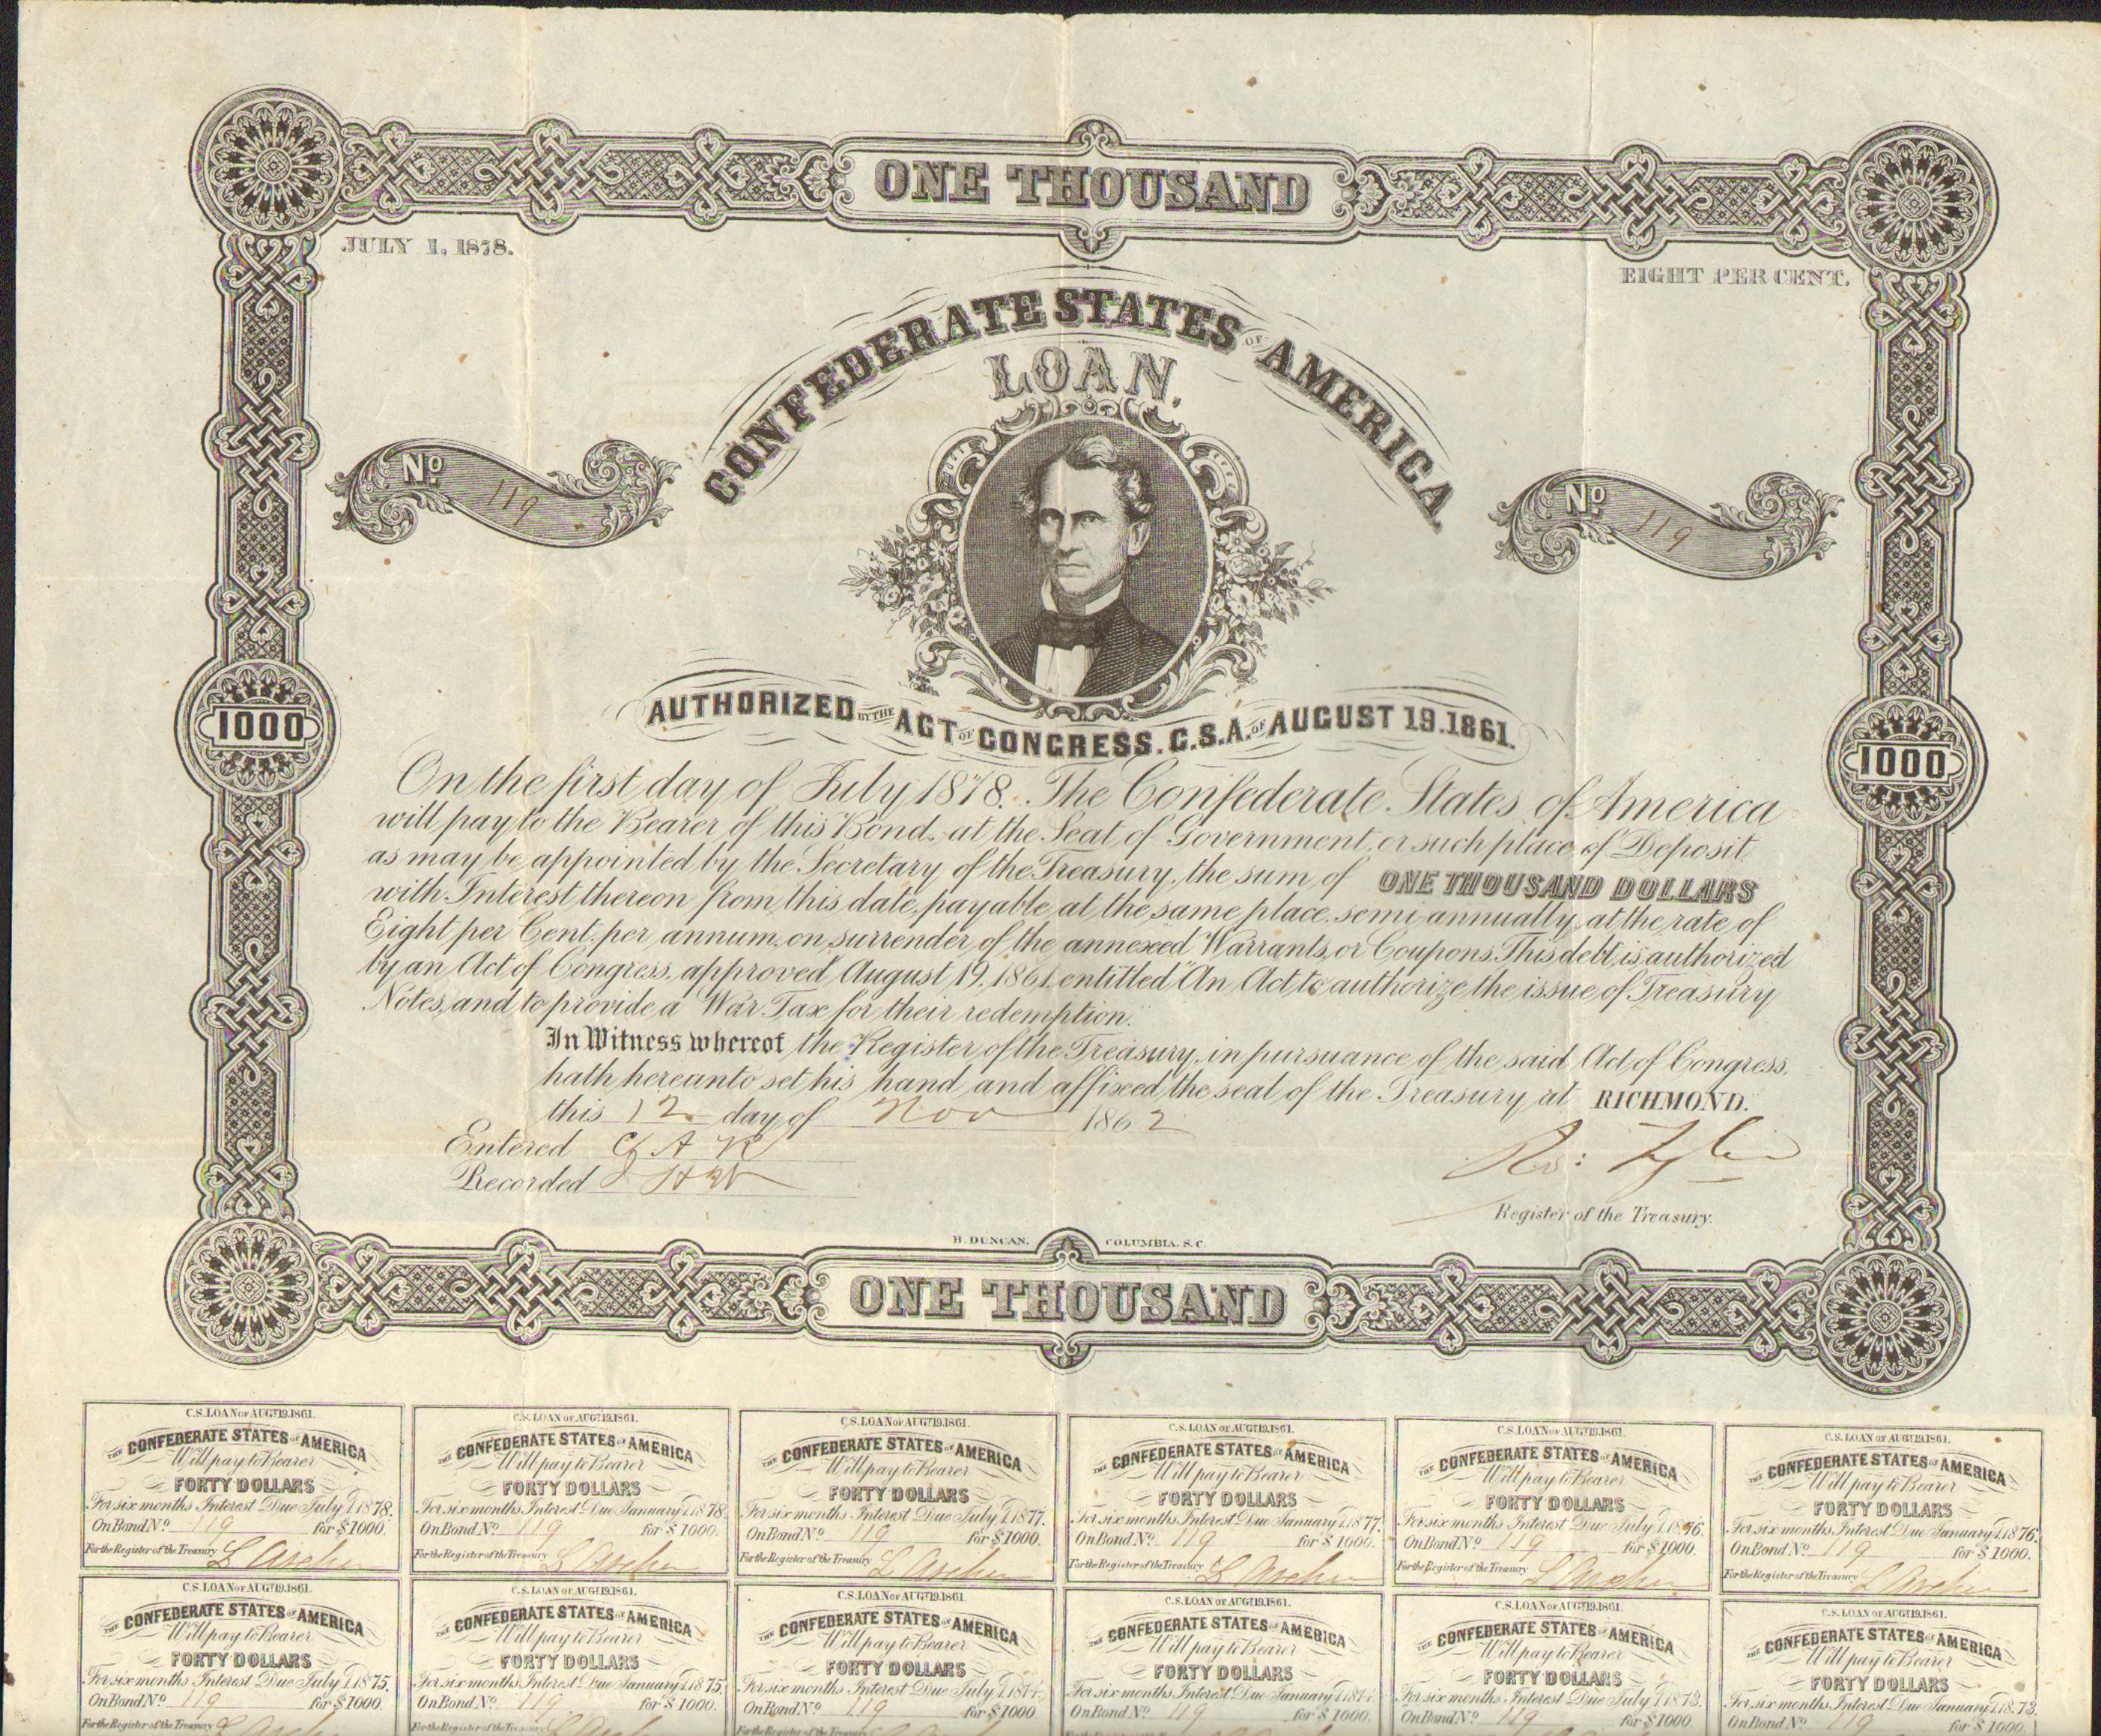 ONE THOUSAND
JULY 1, 1878.
EIGHT PER CENT.
CONFEDERATE STATES OF AMERICA
LOAN.
No. 119
No. 119
AUTHORIZED BY THE ACT OF CONGRESS. C.S.A. OF AUGUST 19. 1861.
1000
1000
On the first day of July 1878. The Confederate States of America
will pay to the Bearer of this Bond, at the Seat of Government, or such place of Deposit
as may be appointed by the Secretary of the Treasury, the sum of ONE THOUSAND DOLLARS
with Interest thereon from this date, payable at the same place semi annually, at the rate of
Eight per Cent. per annum, on surrender of the annexed Warrants, or Coupons. This debt is authorized
by an Act of Congress, approved August 19, 1861, entitled "An Act to authorize the issue of Treasury
Notes, and to provide a War Tax for their redemption."
In Witness whereof the Register of the Treasury, in pursuance of the said Act of Congress,
hath hereunto set his hand and affixed the seal of the Treasury at RICHMOND.
this 12 day of Nov 1862
Entered
Recorded
Ro: Tyler
Register of the Treasury.
B. DUNCAN, COLUMBIA. S. C.
ONE THOUSAND
C.S. LOAN OF AUGT 19. 1861.
THE CONFEDERATE STATES OF AMERICA
Will pay to Bearer
FORTY DOLLARS
For six months Interest Due July 1. 1878.
On Bond No. 119 for $1000.
For the Register of the Treasury
C.S. LOAN OF AUGT 19. 1861.
THE CONFEDERATE STATES OF AMERICA
Will pay to Bearer
FORTY DOLLARS
For six months Interest Due January 1. 1878.
On Bond No. 119 for $1000.
For the Register of the Treasury
C.S. LOAN OF AUGT 19. 1861.
THE CONFEDERATE STATES OF AMERICA
Will pay to Bearer
FORTY DOLLARS
For six months Interest Due July 1. 1877.
On Bond No. 119 for $1000.
For the Register of the Treasury
C.S. LOAN OF AUGT 19. 1861.
THE CONFEDERATE STATES OF AMERICA
Will pay to Bearer
FORTY DOLLARS
For six months Interest Due January 1. 1877.
On Bond No. 119 for $1000.
For the Register of the Treasury
C.S. LOAN OF AUGT 19. 1861.
THE CONFEDERATE STATES OF AMERICA
Will pay to Bearer
FORTY DOLLARS
For six months Interest Due July 1. 1876.
On Bond No. 119 for $1000.
For the Register of the Treasury
C.S. LOAN OF AUGT 19. 1861.
THE CONFEDERATE STATES OF AMERICA
Will pay to Bearer
FORTY DOLLARS
For six months Interest Due January 1. 1876.
On Bond No. 119 for $1000.
For the Register of the Treasury
C.S. LOAN OF AUGT 19. 1861.
THE CONFEDERATE STATES OF AMERICA
Will pay to Bearer
FORTY DOLLARS
For six months Interest Due July 1. 1875.
On Bond No. 119 for $1000.
For the Register of the Treasury
C.S. LOAN OF AUGT 19. 1861.
THE CONFEDERATE STATES OF AMERICA
Will pay to Bearer
FORTY DOLLARS
For six months Interest Due January 1. 1875.
On Bond No. 119 for $1000.
For the Register of the Treasury
C.S. LOAN OF AUGT 19. 1861.
THE CONFEDERATE STATES OF AMERICA
Will pay to Bearer
FORTY DOLLARS
For six months Interest Due July 1. 1874.
On Bond No. 119 for $1000.
For the Register of the Treasury
C.S. LOAN OF AUGT 19. 1861.
THE CONFEDERATE STATES OF AMERICA
Will pay to Bearer
FORTY DOLLARS
For six months Interest Due January 1. 1874.
On Bond No. 119 for $1000.
C.S. LOAN OF AUGT 19. 1861.
THE CONFEDERATE STATES OF AMERICA
Will pay to Bearer
FORTY DOLLARS
For six months Interest Due July 1. 1873.
On Bond No. 119 for $1000.
C.S. LOAN OF AUGT 19. 1861.
THE CONFEDERATE STATES OF AMERICA
Will pay to Bearer
FORTY DOLLARS
For six months Interest Due January 1. 1873.
On Bond No. 119 for $1000.